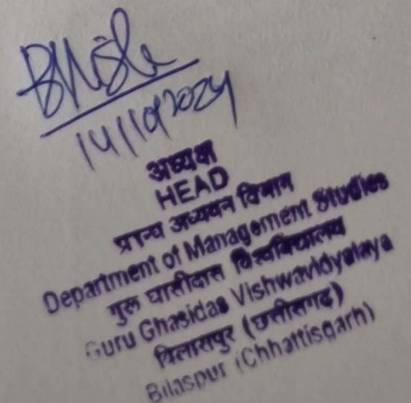 14/10/2024
अध्यक्ष
HEAD
प्रबन्ध अध्ययन विभाग
Department of Management Studies
गुरू घासीदास विश्वविद्यालय
Guru Ghasidas Vishwavidyalaya
बिलासपुर (छत्तीसगढ़)
Bilaspur (Chhattisgarh)